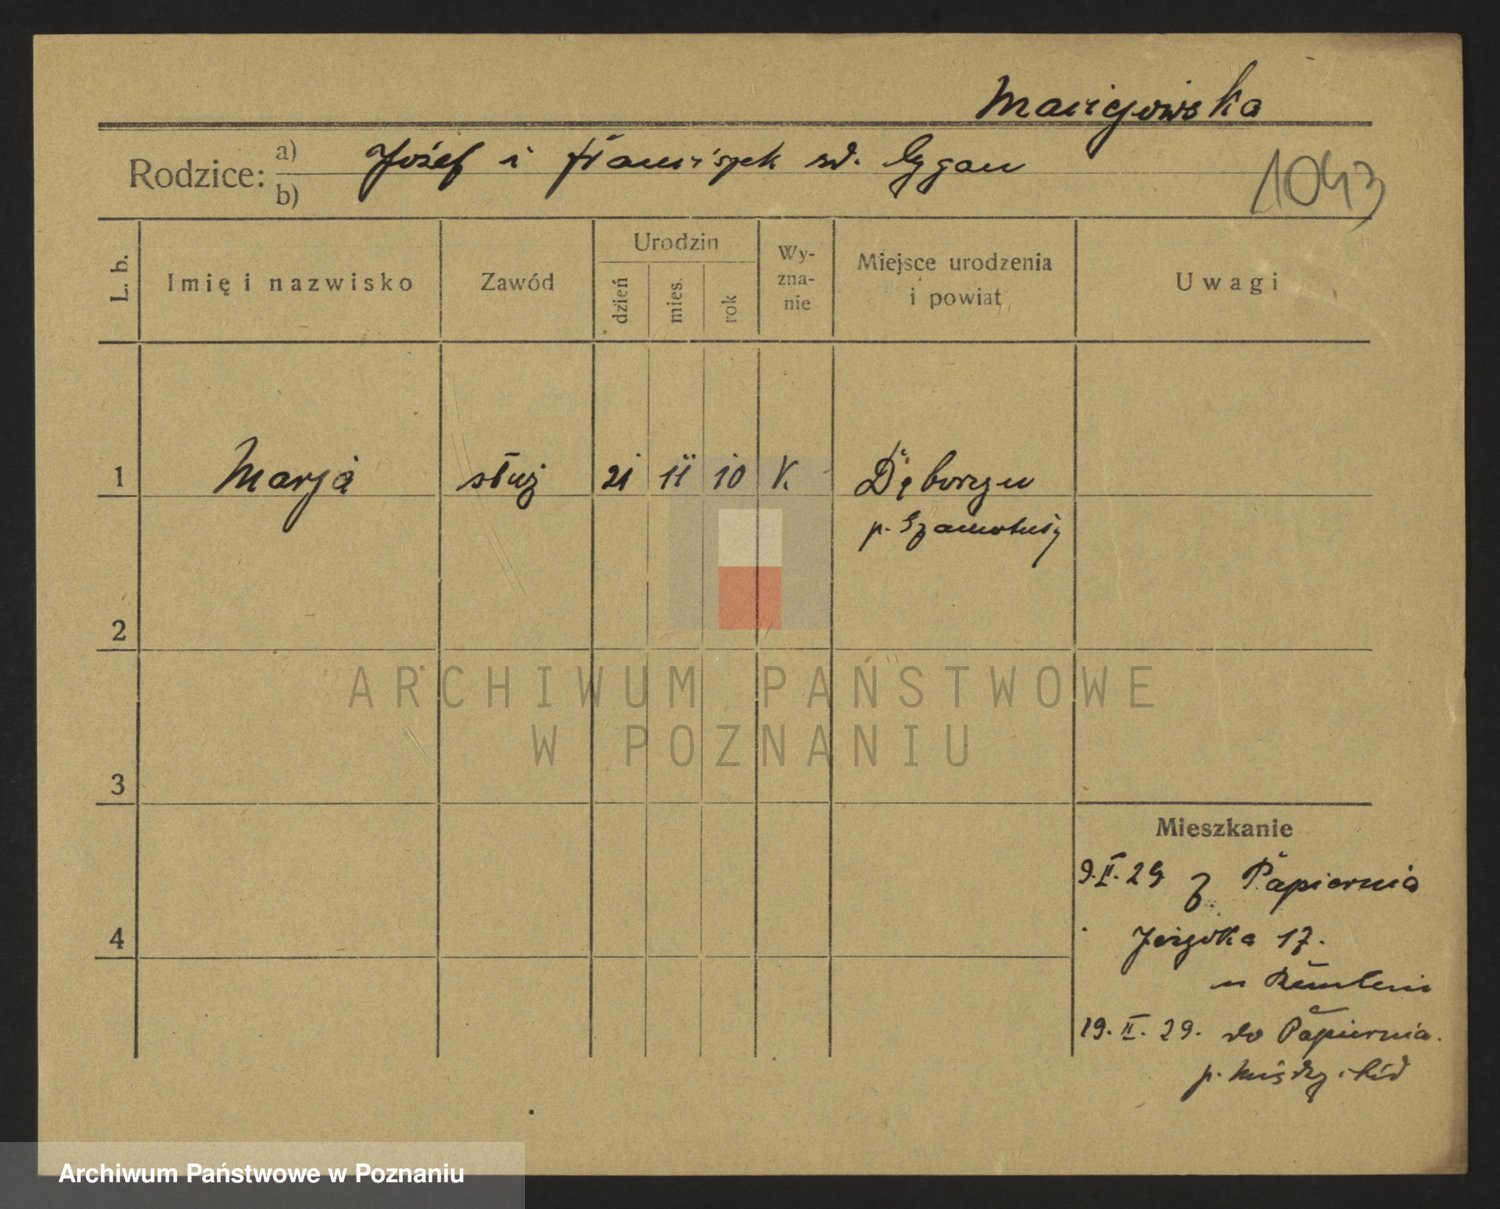 Maciejowska
Rodzice: a) Józef i Franciszek zd. Cygan
b)
1043
L. b.
Imię i nazwisko
Zawód
Urodzin
dzień
mies.
rok
Wy-
zna-
nie
Miejsce urodzenia
i powiat
Uwagi
1 Marja służ 21 11 10 K.
p. Szamotuły
2
3
4
Mieszkanie
9.II.29 z Papiernia
17.
u
19.II.29. do Papiernia.
p. Międzychód
ARCHIWUM PAŃSTWOWE
W POZNANIU
Archiwum Państwowe w Poznaniu